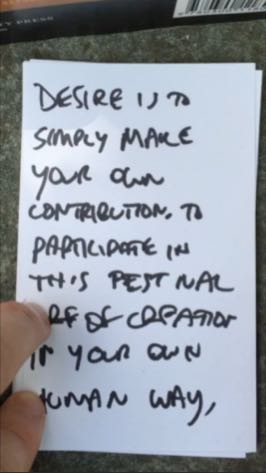 TY PRESS
DESIRE IS TO
SIMPLY MAKE
YOUR OWN
CONTRIBUTION. TO
PARTICIPATE IN
THIS PEST NAL
OF CREATION
IN YOUR OWN
HUMAN WAY,